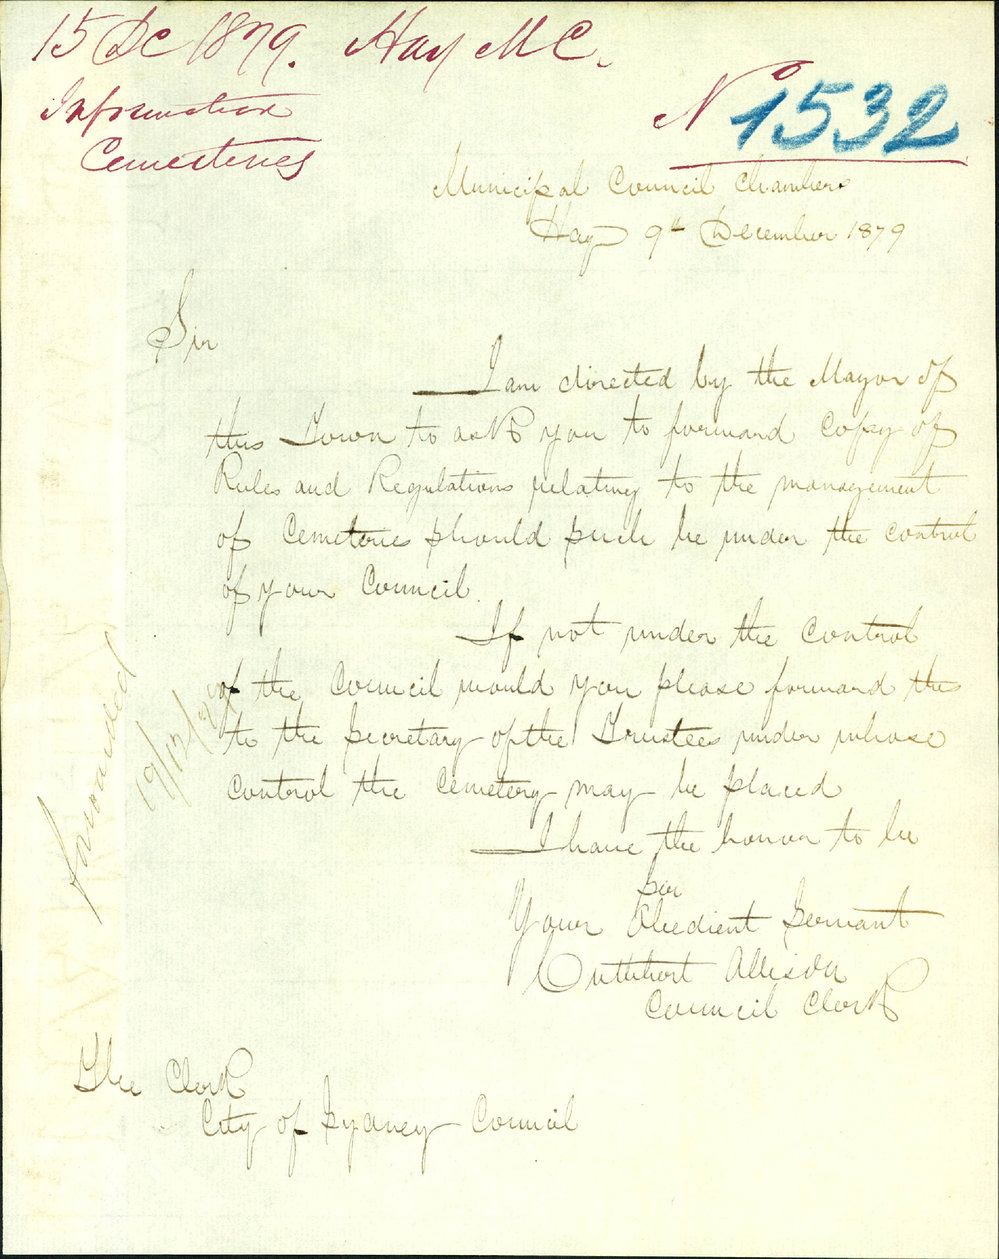 15 Dc 1879. Hay M C.
Information
Cemeteries
No 1532
Municipal Council Chambers
Hay 9th December 1879
Sir
I am directed by the Mayor of
this Town to ask you to forward Copy of
Rules and Regulations relating to the management
of Cemeteries should such be under the control
of your Council.
If not under the control
of the Council would you please forward this
to the Secretary of the Trustees under whose
control the Cemetery may be placed
I have the honor to be
Sir
Your Obedient Servant
Cuthbert Allison
Council Clerk
The Clerk
City of Sydney Council
forwarded
19/12/79